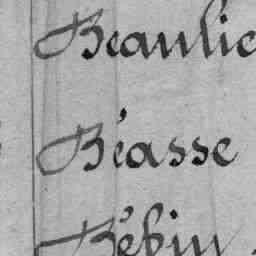 Beaulie
Béasse
Bébin